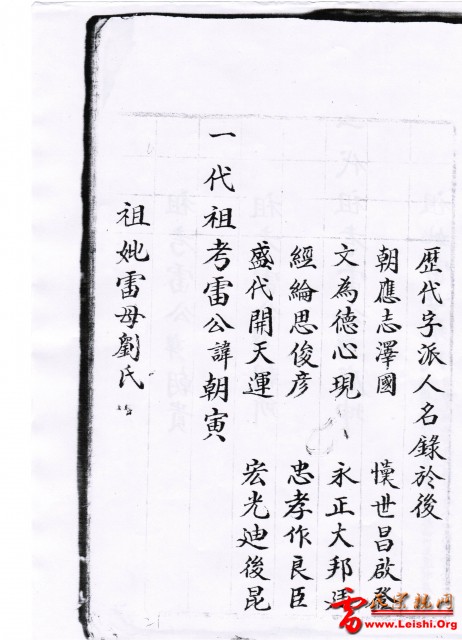 歷代字派人名錄於後
朝應志澤國 世昌啟發
文為德心現 永正大邦
經綸思俊彥 忠孝作良臣
盛代開天運 宏光迪後昆
一代祖考雷公諱朝寅
祖妣雷母劉氏
雷 网
www.Leishi.Org